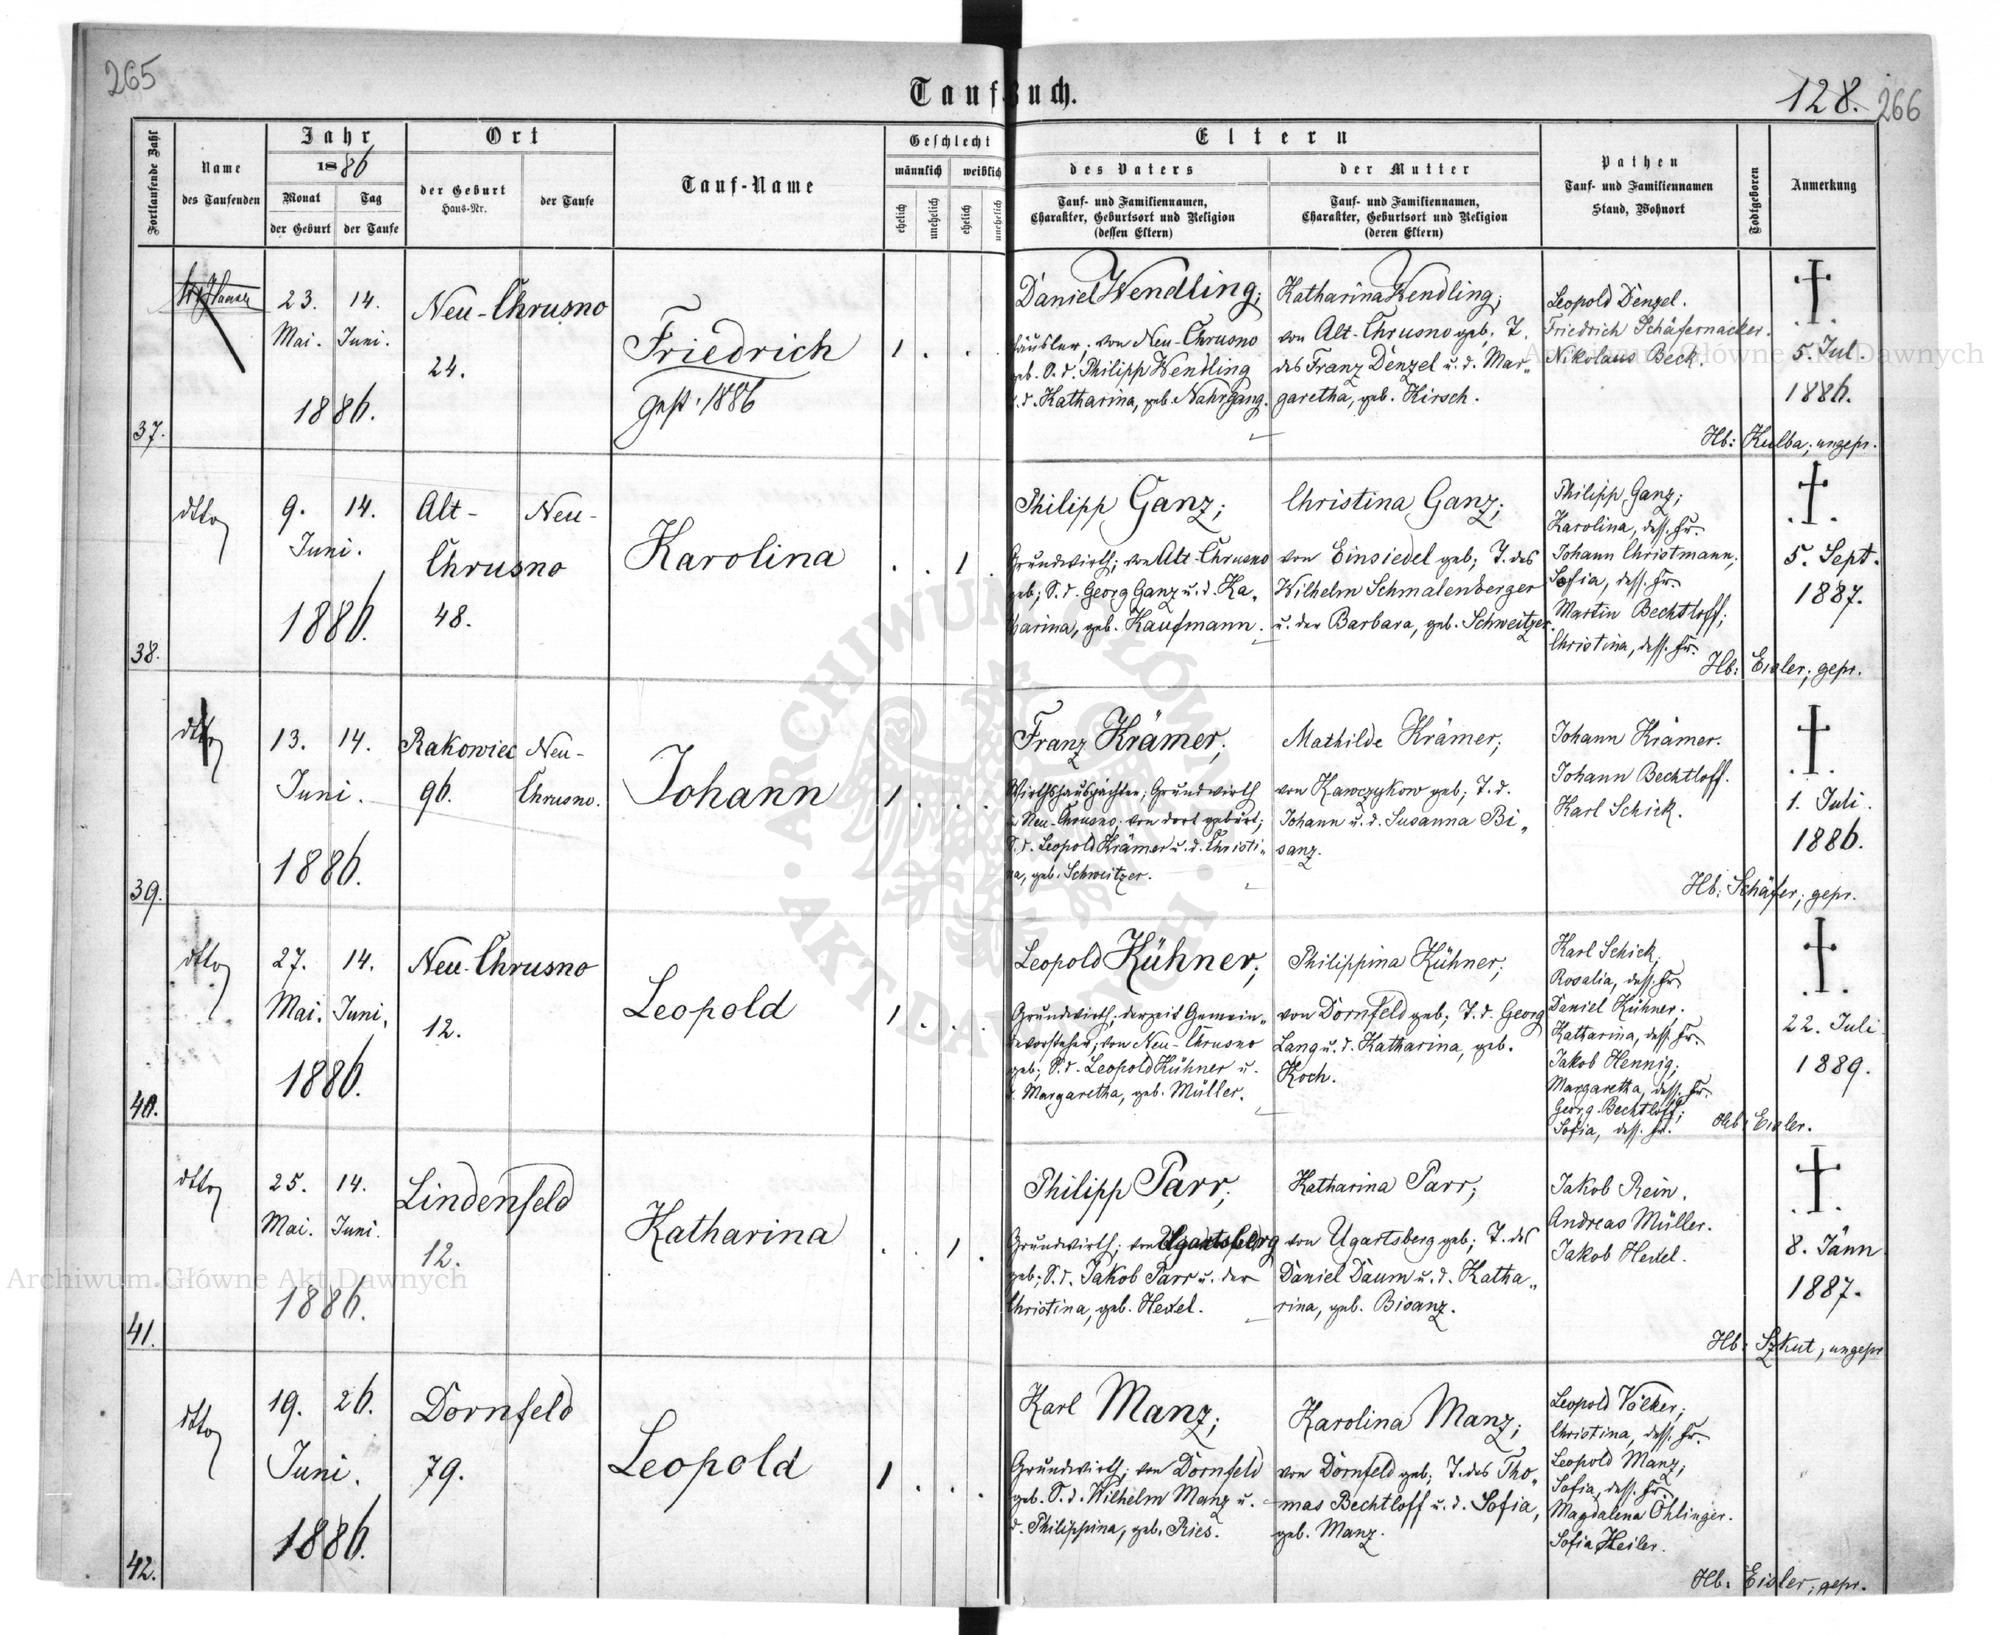 265
Taufbuch.
128. 266
Fortlaufende Zahl
Name
des Taufenden
Jahr
1886
Monat
der Geburt
Tag
der Taufe
Ort
der Geburt
Haus-Nr.
der Taufe
Tauf-Name
Geschlecht
männlich
weiblich
ehelich
unehelich
ehelich
unehelich
Eltern
des Vaters
Tauf- und Familiennamen,
Charakter, Geburtsort und Religion
(dessen Eltern)
der Mutter
Tauf- und Familiennamen,
Charakter, Geburtsort und Religion
(deren Eltern)
Pathen
Tauf- und Familiennamen
Stand, Wohnort
Todtgeboren
Anmerkung
37.
23. 14.
Mai. Juni.
1886.
Neu-Chrusno
24.
Friedrich
gest. 1886
1 . . .
Daniel Wendling;
häusler; von Neu-Chrusno
geb. S. d. Philipp Wendling
u. d. Katharina, geb. Nahrgang.
Katharina Wendling;
von Alt-Chrusno geb. T.
des Franz Denzel u. d. Mar-
garetha, geb. Hirsch.
Leopold Denzel.
Friedrich Schäfernacker.
Nikolaus Beck.
5. Jul.
1886.
Hb: Kulba; ungepr.
38.
dtto
9. 14.
Juni.
1886.
Alt- Neu-
Chrusno
48.
Karolina
. . 1 .
Philipp Ganz;
Grundwirth; von Alt-Chrusno
geb; S. d. Georg Ganz u. d. Ka-
tharina, geb. Kaufmann.
Christina Ganz;
von Einsiedel geb; T. des
Wilhelm Schmalenberger
u. der Barbara, geb. Schweitzer.
Philipp Ganz;
Karolina, dess. Fr.
Johann Christmann;
Sofia, dess. Fr.
Martin Bechtloff;
Christina, dess. Fr.
5. Sept.
1887.
Hb: Eisler; gepr.
39.
dtto
13. 14.
Juni.
1886.
Rakowiec Neu-
96. Chrusno.
Johann
1 . . .
Franz Krämer;
Wirthshauspächter; Grundwirth
in Neu-Chrusno; von dort gebürt;
S. d. Leopold Krämer u. d. Christi-
na, geb. Schweitzer.
Mathilde Krämer;
von Kawczykow geb; T. d.
Johann u. d. Susanna Bi-
sanz.
Johann Krämer.
Johann Bechtloff.
Karl Schick.
1. Juli.
1886.
Hb: Schäfer; gepr.
40.
dtto
27. 14.
Mai. Juni.
1886.
Neu-Chrusno
12.
Leopold
1 . . .
Leopold Kühner;
Grundwirth; derzeit Gemein-
devorsteher; von Neu-Chrusno
geb; S. d. Leopold Kühner u.
d. Margaretha, geb. Müller.
Philippina Kühner;
von Dornfeld geb; T. d. Georg
Lang u. d. Katharina, geb.
Koch.
Karl Schick;
Rosalia, dess. Fr.
Daniel Kühner.
Katharina, dess. Fr.
Jakob Hennig;
Margaretha, dess. Fr.
Georg Bechtloff;
Sofia, dess. Fr.
22. Juli
1889.
Hb: Eisler.
41.
dtto
25. 14.
Mai. Juni.
1886.
Lindenfeld
12.
Katharina
. . 1 .
Philipp Parr;
Grundwirth; von Ugartsberg
geb; S. d. Jakob Parr u. der
Christina, geb. Hexel.
Katharina Parr;
von Ugartsberg geb; T. des
Daniel Daum u. d. Katha-
rina, geb. Bisanz.
Jakob Rein.
Andreas Müller.
Jakob Hexel.
8. Jänn
1887.
Hb: Szkut, ungepr
42.
dtto
19. 26.
Juni.
1886.
Dornfeld
79.
Leopold
1 . . .
Karl Manz;
Grundwirth; von Dornfeld
geb. S. d. Wilhelm Manz u.
d. Philippina, geb. Ries.
Karolina Manz;
von Dornfeld geb; T. des Tho-
mas Bechtloff u. d. Sofia,
geb. Manz.
Leopold Völker;
Christina, dess. Fr.
Leopold Manz;
Sofia, dess. Fr.
Magdalena Öhlinger.
Sofia Heiler.
Hb: Eisler; gepr.
Archiwum Główne Akt Dawnych
Archiwum Główne Akt Dawnych
ARCHIWUM GŁÓWNE AKT DAWNYCH